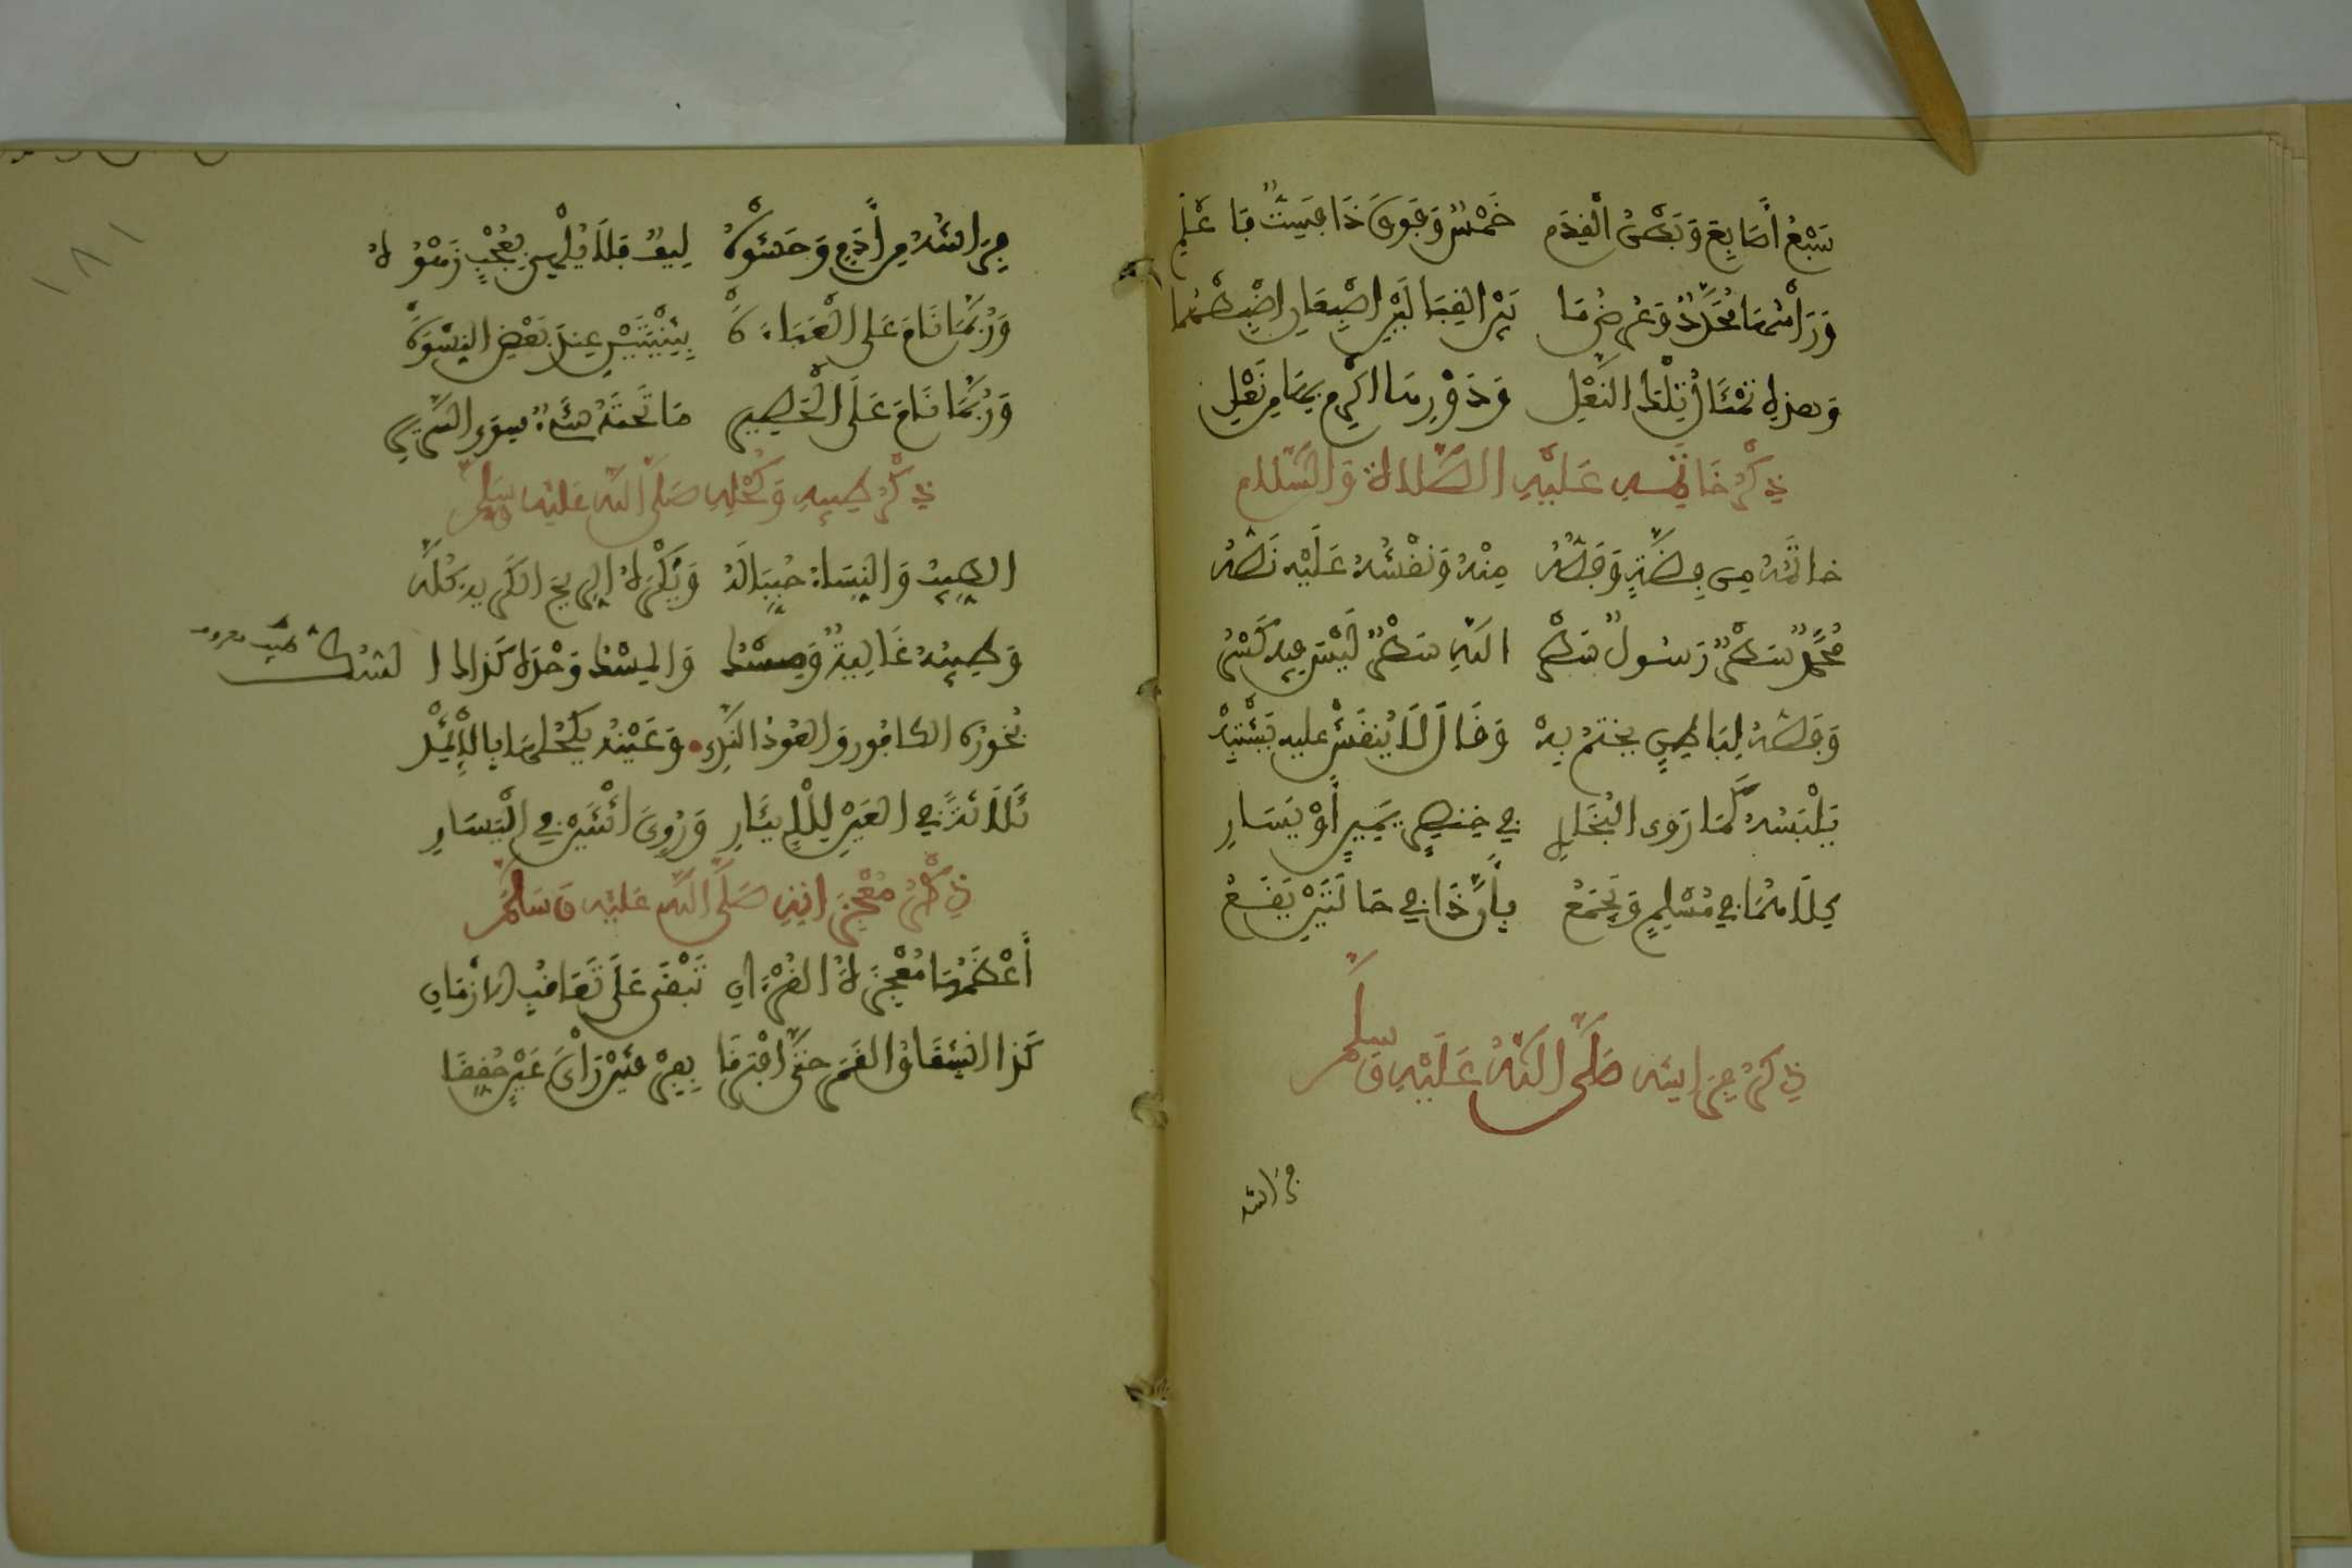 سَبْعُ أَصَابِعَ وَبَطْنُ الْقَدَمِ خَمْسٌ وَفَوْقَ ذَا فَسِتٌّ فَاعْلَمِ
وَرَأْسُهَا مُحَدَّدٌ وَعَرْضُ مَا بَيْنَ القِبَالَيْنِ اصْبَعَانِ اضْبِطْهُمَا
وَهَذِهِ تِمْثَالُ تِلْكَ النَّعْلِ وَدَوْرِهَا اكْرِمْ بِهَا مِن نَعْلِ
ذِكْرُ خَاتَمِهِ عَلَيْهِ الصَّلَاةُ وَالسَّلَام
خاتَمُهُ مِن فِضَّةٍ وَفَصُّهُ مِنْهُ وَنَقْشُهُ عَلَيْهِ نَصُّهُ
مُحَمَّدٌ سَطْرٌ رَسُولُ سَطْرُ اللهِ سَطْرٌ لَيْسَ فِيهِ كَسْرُ
وَفَصُّهُ لِبَاطِنٍ يختمُ بِهْ وَقَالَ لَا يُنقَشْ عليهِ يَشْتَبِهْ
يَلْبَسُهُ كَمَا رَوى البُخَارِي فِي خِنصِرٍ يَمِينٍ أَوْ يَسَارِ
كِلَاهُمَا فِي مُسْلِمٍ وَيُجْمَعُ بِأَنَّ ذَا فِي حَالَتَيْنِ يَقَعُ
ذِكْرُ فِرَاشِهِ صَلَّى اللهُ عَلَيْهِ وَسَلَّمَ
فراشه
١٨١
فِرَاشُهُ مِن أَدَمٍ وَحَشْوُهُ لِيفٌ فَلَا يُلْهِي بِعُجْبٍ زَهْوُهُ
وَرُبَّمَا نَامَ عَلى الْعَبَاءَةِ بِثَنْيَتَيْنِ عِندَ بَعْضِ النِّسْوَةِ
وَرُبَّمَا نَامَ عَلَى الْحَصِيرِ مَا تَحْتَهُ شَيْءٌ سِوَى السَّرِيرِ
ذِكْرُ طِيبِهِ وَكُحْلِهِ صَلَّى اللهُ عَلَيْهِ وَسَلَّمَ
الطِّيبُ وَالنِّسَاءُ حُبِّبَا لَهُ وَيَكْرَهُ الرِّيحَ الكَرِيهَ كُلَّهُ
وَطِيبُهُ غَالِيَةٌ وَمِسْكُ وَالمِسْكُ وَحْدَهُ كَذَاكَ السُّكُّ
بخُورُهُ الكَافُورُ وَالعُودُ النَّدِي وَعَيْنُهُ يَكْحُلُهَا بِالْإِثْمِدِ
ثَلَاثَةً فِي العَيْنِ لِلْإِيثَارِ وَرُوِيَ اثْنَيْنِ فِي الْيَسَارِ
ذِكْرُ مُعْجِزَاتِهِ صَلَّى اللهُ عَلَيْهِ وَسَلَّمَ
أَعْظَمُهَا مُعْجِزَةُ القُرْءَانِ تَبْقَى عَلَى تَعَاقُبِ الأَزْمَانِ
كَذَا انْشِقَاقُ القَمَرِ حَتَّى افْتَرَقَا بِفِرْقَتَيْنِ رَأْيَ عَيْنٍ حُقِّقَا